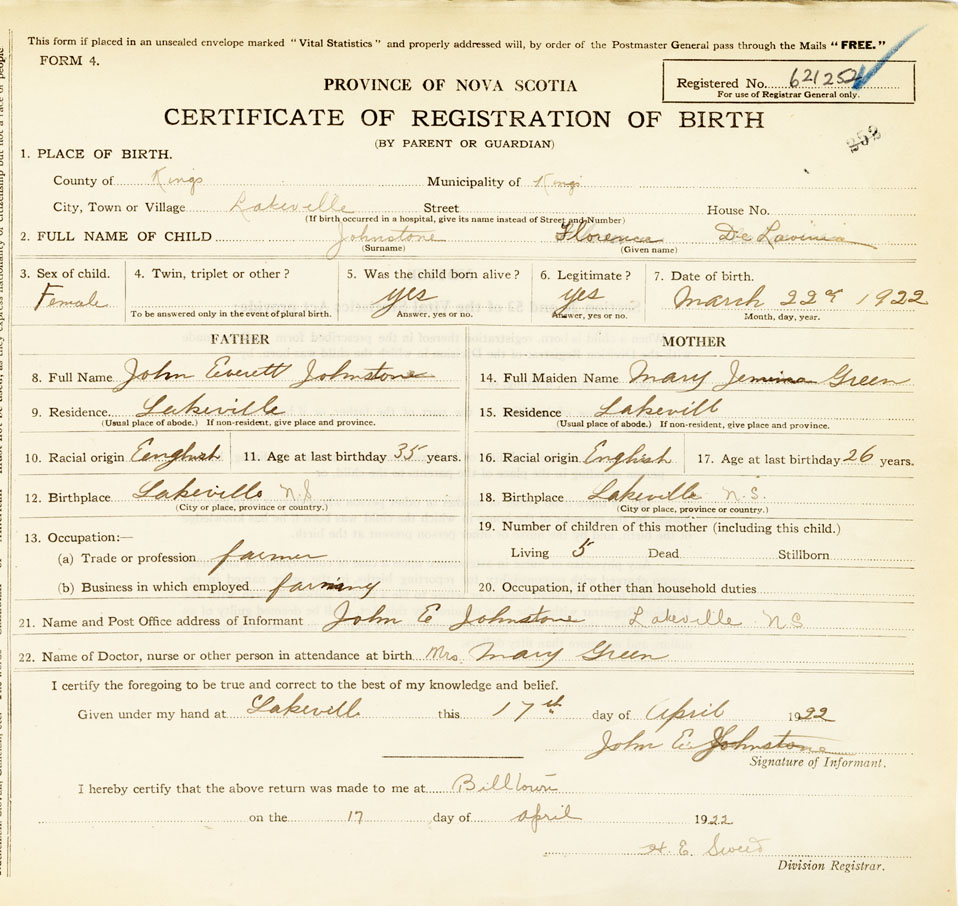 This form if placed in an unsealed envelope marked "Vital Statistics" and properly addressed will, by order of the Postmaster General pass through the Mails "FREE."
FORM 4.
Registered No. 621252
For use of Registrar General only.
PROVINCE OF NOVA SCOTIA
CERTIFICATE OF REGISTRATION OF BIRTH
252
(BY PARENT OR GUARDIAN)
1. PLACE OF BIRTH.
County of Kings Municipality of Kings
City, Town or Village Lakeville Street House No.
(If birth occurred in a hospital, give its name instead of Street and Number)
2. FULL NAME OF CHILD Johnstone Florence De Lavinia
(Surname) (Given name)
3. Sex of child. 4. Twin, triplet or other? 5. Was the child born alive? 6. Legitimate? 7. Date of birth.
Female yes yes March 22 1922
To be answered only in the event of plural birth. Answer, yes or no. Answer, yes or no. Month, day, year.
FATHER MOTHER
8. Full Name John Everett Johnstone 14. Full Maiden Name Mary Jemima Green
9. Residence Lakeville 15. Residence Lakevill
(Usual place of abode.) If non-resident, give place and province. (Usual place of abode.) If non-resident, give place and province.
10. Racial origin English 11. Age at last birthday 35 years. 16. Racial origin English 17. Age at last birthday 26 years.
12. Birthplace Lakeville N S 18. Birthplace Lakeville N. S.
(City or place, province or country.) (City or place, province or country.)
13. Occupation:— 19. Number of children of this mother (including this child.)
(a) Trade or profession farmer Living 5 Dead Stillborn
(b) Business in which employed farming 20. Occupation, if other than household duties
21. Name and Post Office address of Informant John E Johnstone Lakeville N S
22. Name of Doctor, nurse or other person in attendance at birth Mrs. Mary Green
I certify the foregoing to be true and correct to the best of my knowledge and belief.
Given under my hand at Lakevill this 17th day of April 1922
John E Johnstone
Signature of Informant.
I hereby certify that the above return was made to me at Billtown
on the 17 day of april 1922
H. E.
Division Registrar.